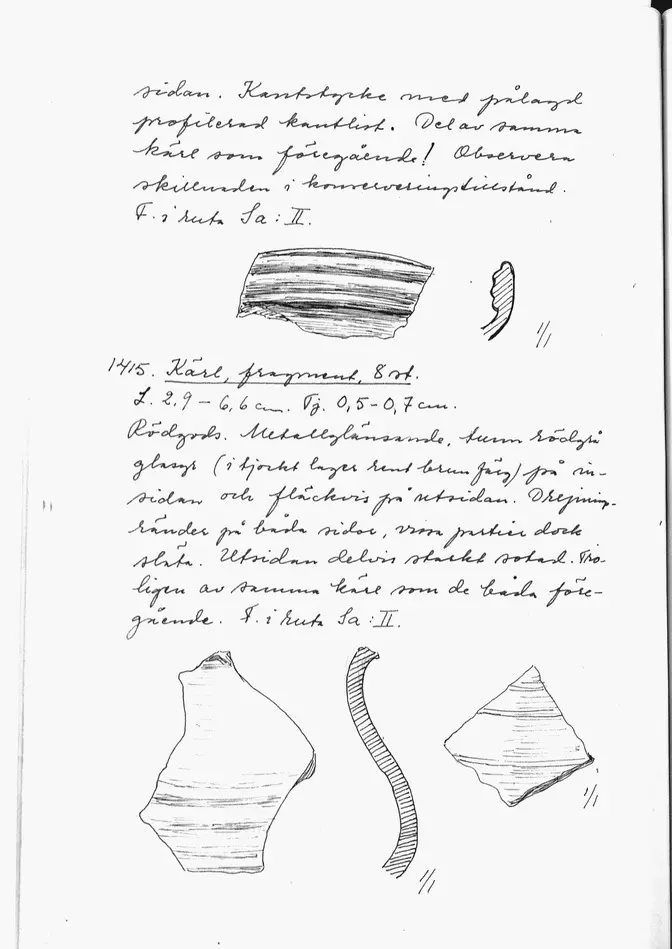 sidan. Kantstycke med pålagd
profilerad kantlist. Del av samma
kärl som föregående! Observera
skillnaden i konserveringstillstånd.
F. i ruta Sa : II.
1/1
1415. Kärl, fragment, 8 st.
L. 2,9 – 6,6 cm. Tj. 0,5 – 0,7 cm.
Rödgods. Metallglänsande, tunn rödgrå
glasyr (i tjockt lager rent brun färg) på in-
sidan och fläckvis på utsidan. Drejnings-
ränder på båda sidor, vissa partier dock
släta. Utsidan delvis starkt sotad. Tro-
ligen av samma kärl som de båda före-
gående. F. i ruta Sa : II.
1/1
1/1